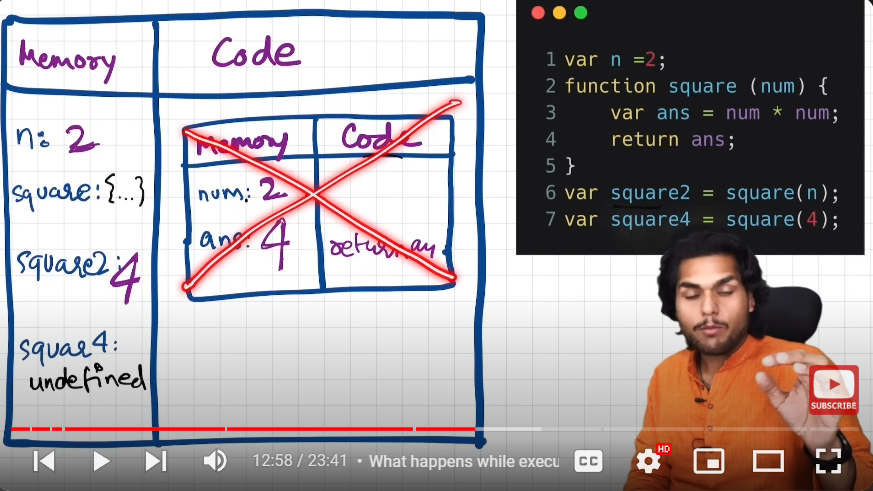 Memory
Code
n: 2
square: {...}
square2: 4
squar4:
undefined
Memory
Code
num: 2
ans: 4
return an
1 var n =2;
2 function square (num) {
3 var ans = num * num;
4 return ans;
5 }
6 var square2 = square(n);
7 var square4 = square(4);
SUBSCRIBE
12:58 / 23:41 • What happens while execu
CC
HD